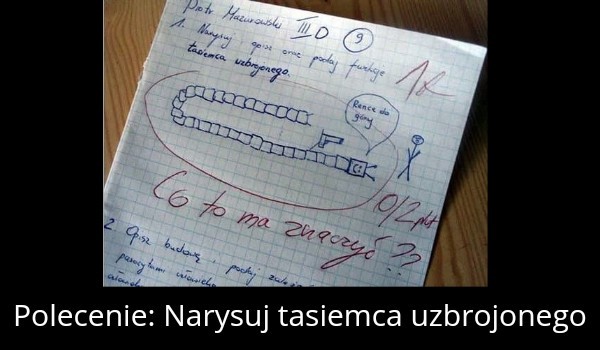 Piotr Mazurowski III D 9
1. Narysuj opisz oraz podaj funkcje
tasiemca uzbrojonego.
Rence do
góry
0/2 pkt
Co to ma znaczyć??
2. Opisz budowę i podaj
pasożytami człowieka
Polecenie: Narysuj tasiemca uzbrojonego